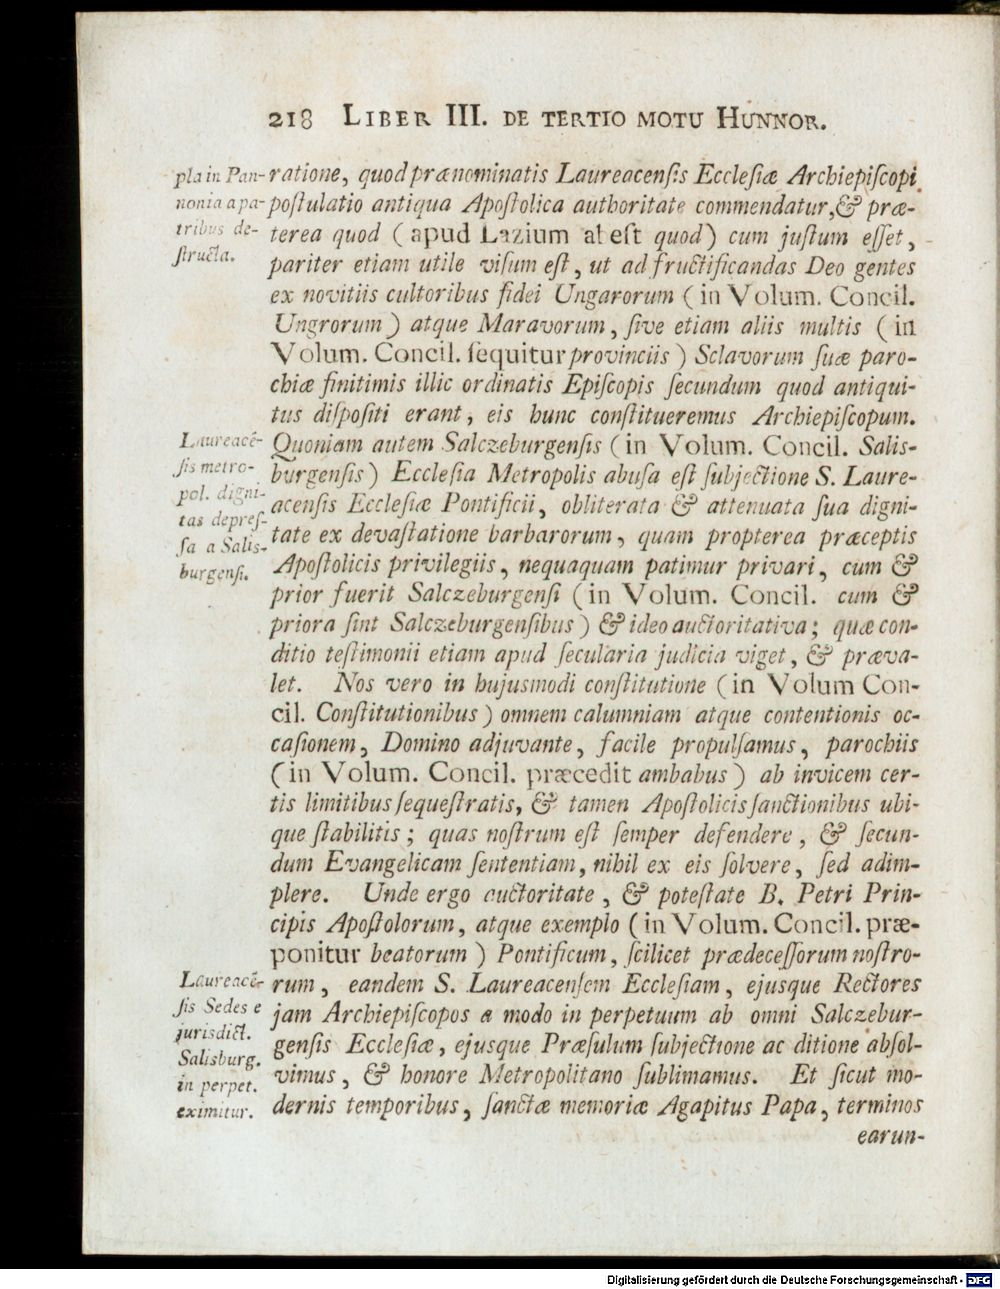 218 LIBER III. DE TERTIO MOTU HUNNOR.
pla in Pan-
nonia a pa-
tribus de-
ſtructa.
ratione, quod prænominatis Laureacenſis Eccleſiæ Archiepiſcopi
poſtulatio antiqua Apoſtolica authoritate commendatur, & præ-
terea quod (apud Lazium abeſt quod) cum juſtum eſſet,
pariter etiam utile viſum eſt, ut ad fructificandas Deo gentes
ex novitiis cultoribus fidei Ungarorum (in Volum. Concil.
Ungrorum) atque Maravorum, ſive etiam aliis multis (in
Volum. Concil. ſequitur provinciis) Sclavorum ſuæ paro-
chiæ finitimis illic ordinatis Epiſcopis ſecundum quod antiqui-
tus diſpoſiti erant, eis hunc conſtitueremus Archiepiſcopum.
Laureacē-
ſis metro-
pol. digni-
tas depreſ-
ſa a Salis-
burgenſi.
Quoniam autem Salczeburgenſis (in Volum. Concil. Salis-
burgenſis) Eccleſia Metropolis abuſa eſt ſubjectione S. Laure-
acenſis Eccleſiæ Pontificii, obliterata & attenuata ſua digni-
tate ex devaſtatione barbarorum, quam propterea præceptis
Apoſtolicis privilegiis, nequaquam patimur privari, cum &
prior fuerit Salczeburgenſi (in Volum. Concil. cum &
priora ſint Salczeburgenſibus) & ideo auctoritativa; quæ con-
ditio teſtimonii etiam apud ſecularia judicia viget, & præva-
let. Nos vero in hujusmodi conſtitutione (in Volum Con-
cil. Conſtitutionibus) omnem calumniam atque contentionis oc-
caſionem, Domino adjuvante, facile propulſamus, parochiis
(in Volum. Concil. præcedit ambabus) ab invicem cer-
tis limitibus ſequeſtratis, & tamen Apoſtolicis ſanctionibus ubi-
que ſtabilitis; quas noſtrum eſt ſemper defendere, & ſecun-
dum Evangelicam ſententiam, nihil ex eis ſolvere, ſed adim-
plere. Unde ergo auctoritate, & poteſtate B. Petri Prin-
cipis Apoſtolorum, atque exemplo (in Volum. Concil. præ-
ponitur beatorum) Pontificum, ſcilicet prædeceſſorum noſtro-
Laureacē-
ſis Sedes e
jurisdict.
Salisburg.
in perpet.
eximitur.
rum, eandem S. Laureacenſem Eccleſiam, ejusque Rectores
jam Archiepiſcopos a modo in perpetuum ab omni Salczebur-
genſis Eccleſiæ, ejusque Præſulum ſubjectione ac ditione abſol-
vimus, & honore Metropolitano ſublimamus. Et ſicut mo-
dernis temporibus, ſanctæ memoriæ Agapitus Papa, terminos
earun-
Digitalisierung gefördert durch die Deutsche Forschungsgemeinschaft - DFG